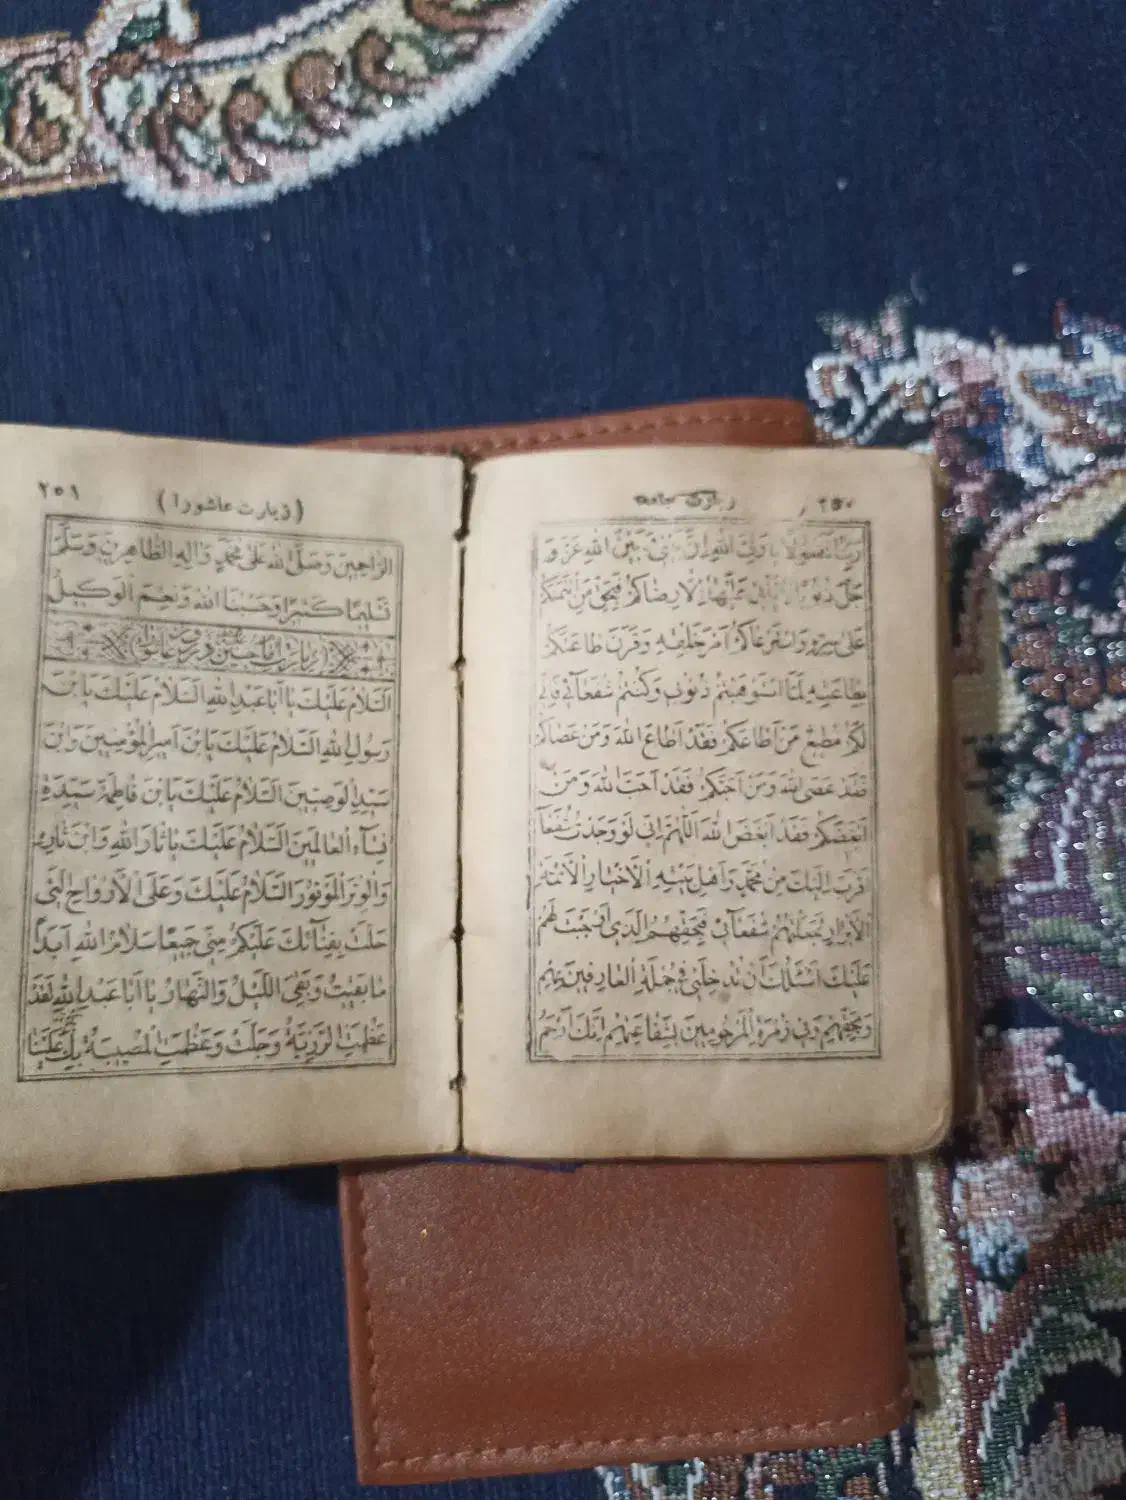 ٢٥٠
زیارت جامعه
حَلَّ ذُنُوبًا لَا يَأْتِي عَلَيْهَا إِلَّا رِضَاكُمْ فَبِحَقِّ مَنِ ائْتَمَنَكُمْ
عَلَى سِرِّهِ وَاسْتَرْعَاكُمْ أَمْرَ خَلْقِهِ وَقَرَنَ طَاعَتَكُمْ
بِطَاعَتِهِ لَمَّا اسْتَوْهَبْتُمْ ذُنُوبِي وَكُنْتُمْ شُفَعَائِي فَإِنِّي
لَكُمْ مُطِيعٌ مَنْ أَطَاعَكُمْ فَقَدْ أَطَاعَ اللهَ وَمَنْ عَصَاكُمْ
فَقَدْ عَصَى اللهَ وَمَنْ أَحَبَّكُمْ فَقَدْ أَحَبَّ اللهَ وَمَنْ
أَبْغَضَكُمْ فَقَدْ أَبْغَضَ اللهَ اَللّهُمَّ إِنِّي لَوْ وَجَدْتُ شُفَعَاءَ
أَقْرَبَ إِلَيْكَ مِنْ مُحَمَّدٍ وَأَهْلِ بَيْتِهِ الْأَخْيَارِ الْأَئِمَّةِ
الْأَبْرَارِ لَجَعَلْتُهُمْ شُفَعَائِي فَبِحَقِّهِمُ الَّذِي أَوْجَبْتَ لَهُمْ
عَلَيْكَ أَسْئَلُكَ أَنْ تُدْخِلَنِي فِي جُمْلَةِ الْعَارِفِينَ بِهِمْ
وَبِحَقِّهِمْ وَفِي زُمْرَةِ الْمَرْحُومِينَ بِشَفَاعَتِهِمْ إِنَّكَ أَرْحَمُ
٢٥١
(زیارت عاشورا)
الرَّاحِمِينَ وَصَلَّى اللهُ عَلَى مُحَمَّدٍ وَآلِهِ الطَّاهِرِينَ وَسَلَّمَ
تَسْلِيمًا كَثِيرًا وَحَسْبُنَا اللهُ وَنِعْمَ الْوَكِيلُ
اَلسَّلَامُ عَلَيْكَ يَا أَبَا عَبْدِ اللهِ اَلسَّلَامُ عَلَيْكَ يَا بْنَ
رَسُولِ اللهِ اَلسَّلَامُ عَلَيْكَ يَا بْنَ أَمِيرِ الْمُؤْمِنِينَ وَابْنَ
سَيِّدِ الْوَصِيِّينَ اَلسَّلَامُ عَلَيْكَ يَا بْنَ فَاطِمَةَ سَيِّدَةِ
نِسَاءِ الْعَالَمِينَ اَلسَّلَامُ عَلَيْكَ يَا ثَارَ اللهِ وَابْنَ ثَارِهِ
وَالْوِتْرَ الْمَوْتُورَ اَلسَّلَامُ عَلَيْكَ وَعَلَى الْأَرْوَاحِ الَّتِي
حَلَّتْ بِفِنَائِكَ عَلَيْكُمْ مِنِّي جَمِيعًا سَلَامُ اللهِ أَبَدًا
مَا بَقِيتُ وَبَقِيَ اللَّيْلُ وَالنَّهَارُ يَا أَبَا عَبْدِ اللهِ لَقَدْ
عَظُمَتِ الرَّزِيَّةُ وَجَلَّتْ وَعَظُمَتِ الْمُصِيبَةُ بِكَ عَلَيْنَا